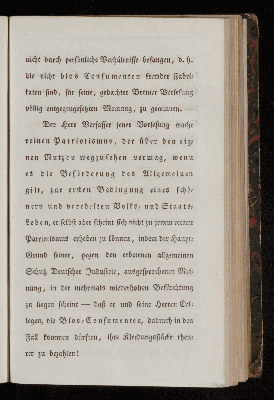 nicht durch persönliche Verhältnisse befangen, d. h.
die nicht blos Consumenten fremder Fabri-
katen sind, für seine, gedachter Bremer Vorlesung
völlig entgegengesetzten Meinung, zu gewinnen.
Der Herr Verfasser jener Vorlesung macht
reinen Patriotismus, der über den eig-
nen Nutzen wegzusehen vermag, wenn
es die Beförderung des Allgemeinen
gilt, zur ersten Bedingung eines schö-
nern und veredelten Volks- und Staats-
Leben, er selbst aber scheint sich nicht zu jenem reinen
Patriotismus erheben zu können, indem der Haupt-
Grund seiner, gegen den erbetenen allgemeinen
Schutz Deutscher Industrie, ausgesprochenen Mei-
nung, in der mehrmals wiederholten Befürchtung
zu liegen scheint — daß er und seine Herren Col-
legen, die Blos-Consumenten, dadurch in den
Fall kommen dürften, ihre Kleidungsstücke theu-
rer zu bezahlen!